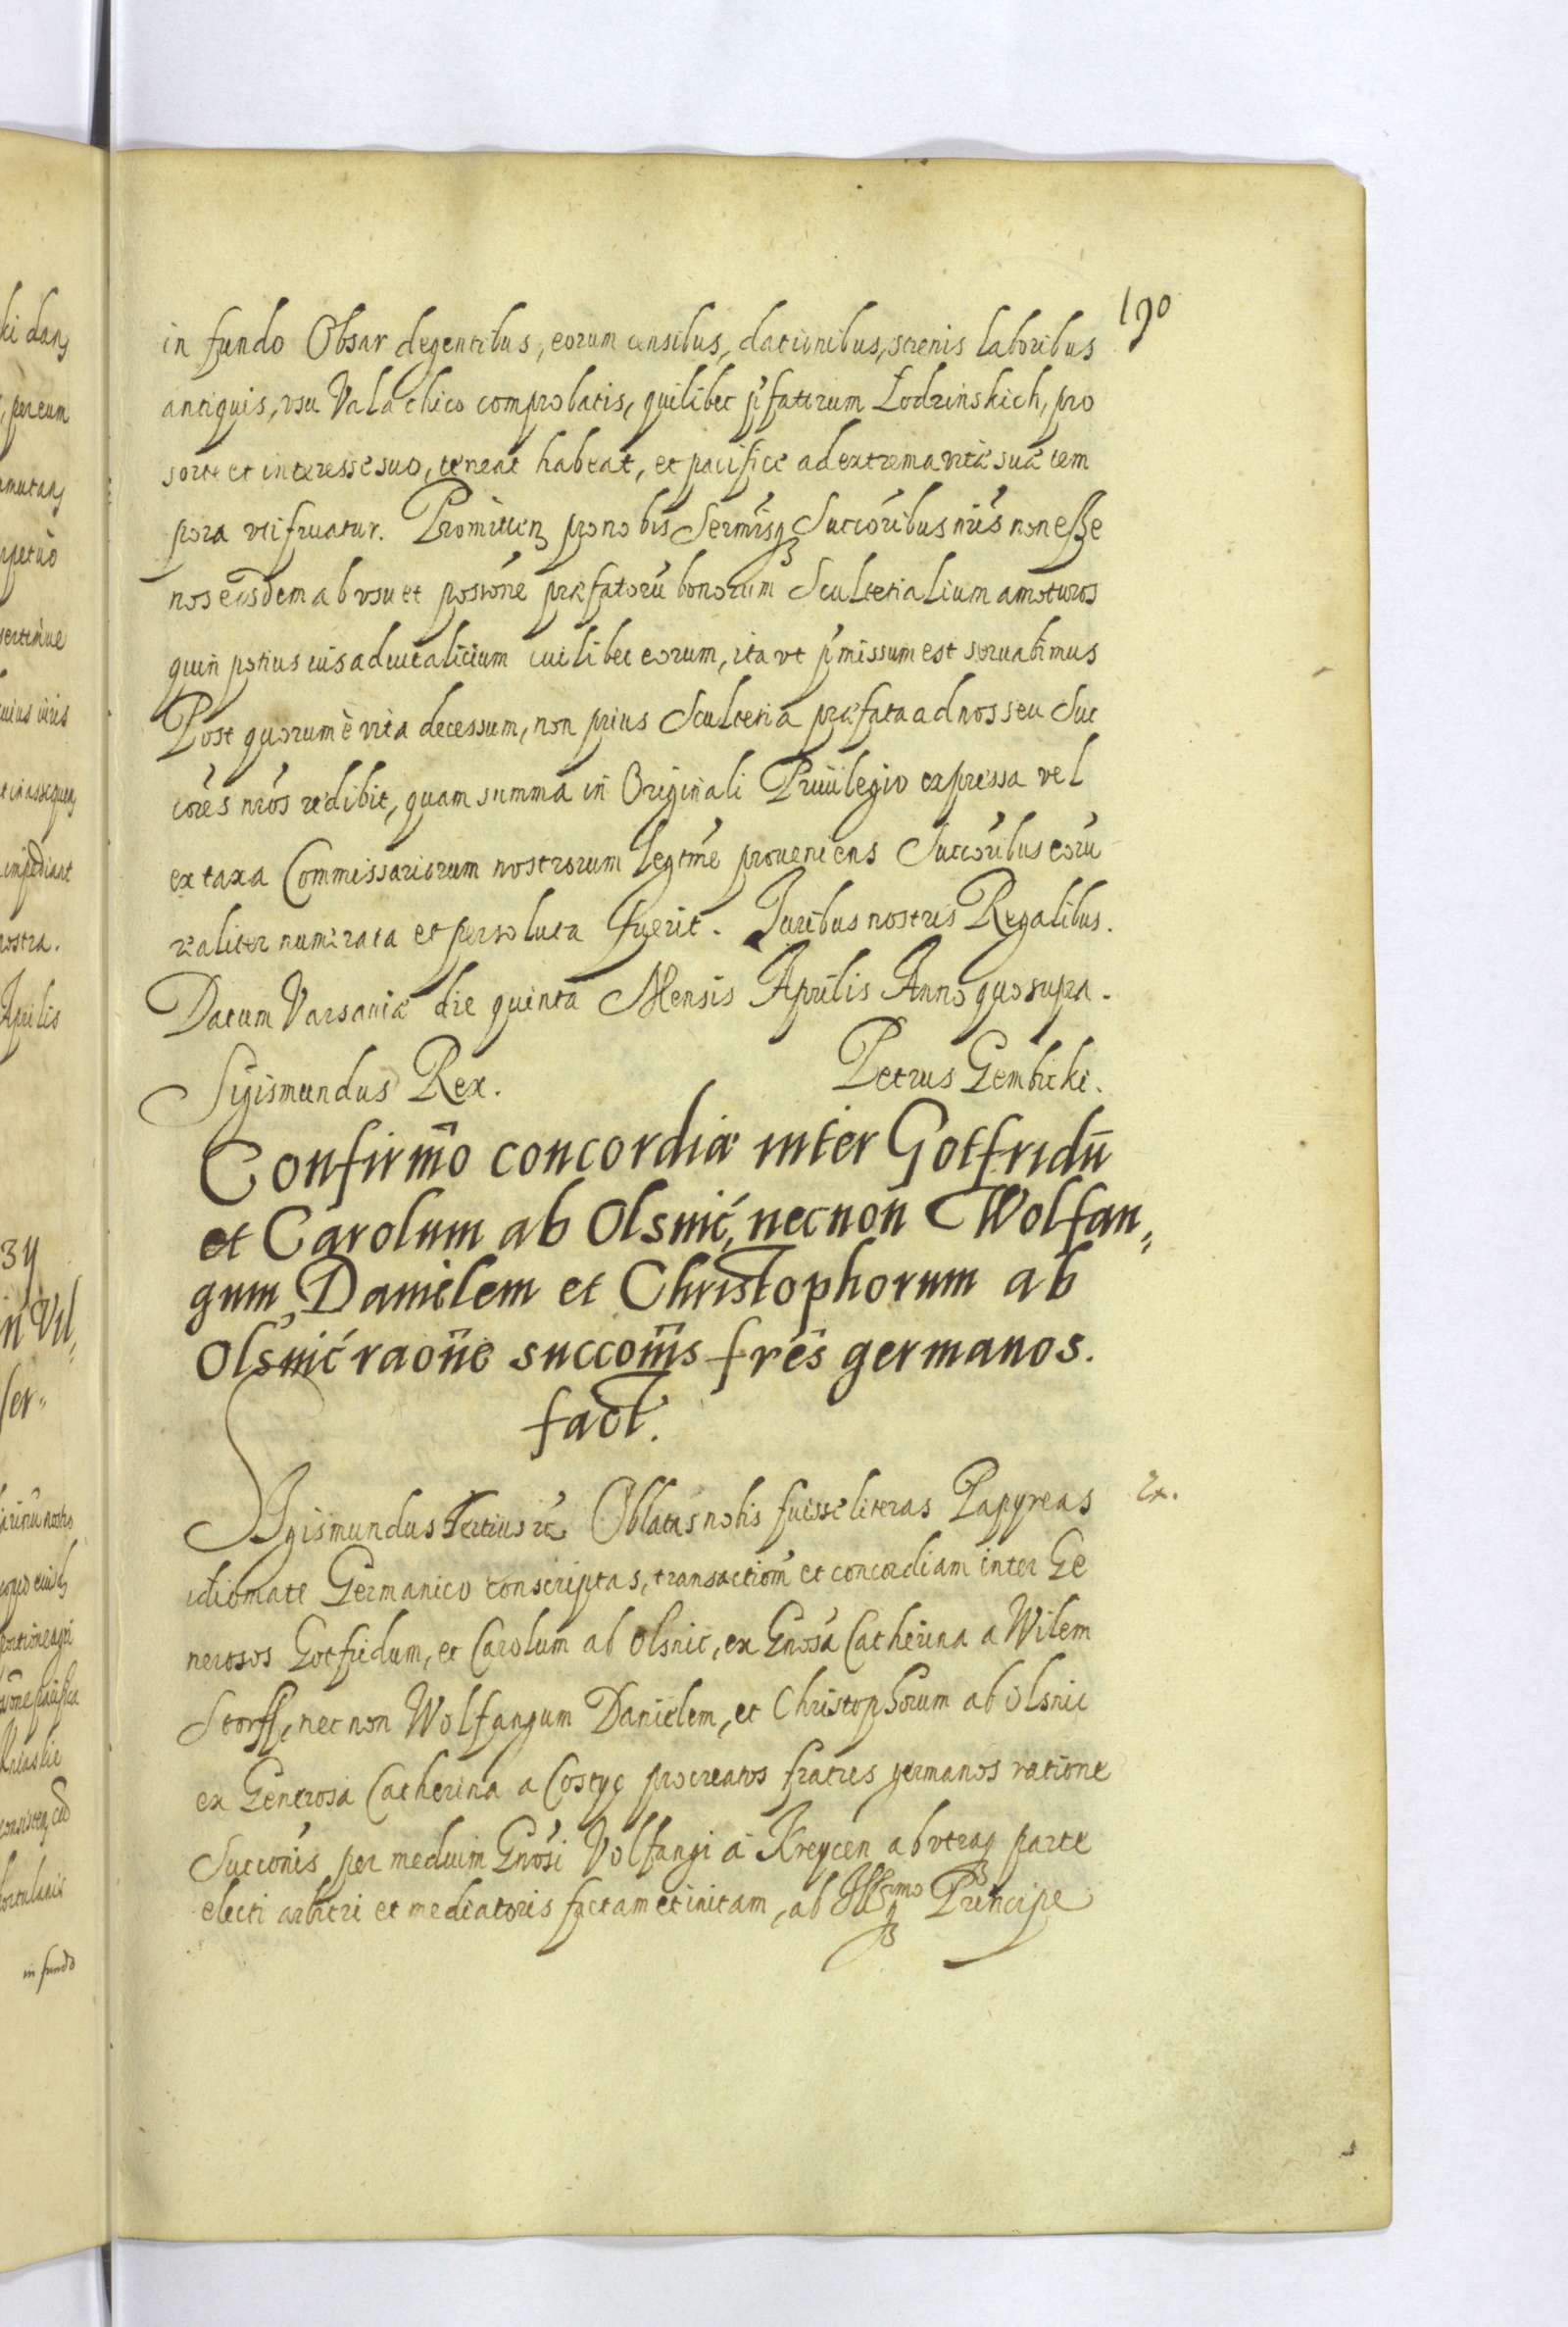 190
in fundo Obsar degentibus, eorum censibus, dationibus, strenis laboribus
antiquis, vsu Valachico comprobatis, quilibet p̃fatorum Łodzinskich, pro
sorte et interesse suo, teneat habeat, et pacifice ad extrema vitæ suæ tem
pora vti fruatur. Promitten pro nobis Sermisq Succoribus nris non esse
nos eosdem ab vsu et possone præfatorũ bonorum Scultetialium amoturos
quin potius ius aduitalicium cuilibet eorum, ita vt p̃missum est seruabimus
Post quorum è vita decessum, non prius Scultetia præfata ad nos seu Suc
cores nros redibit, quam summa in Originali Priuilegio expressa vel
ex taxa Commissariorum nostrorum legtme proueniens Succoribus eorũ
realiter numerata et persoluta fuerit. Juribus nostris Regalibus.
Datum Varsauiæ die quinta Mensis Aprilis Anno quo supra.
Sigismundus Rex. Petrus Gembicki.
Confirmõ concordiæ inter Gotfridũ
et Carolum ab Olsnić, necnon Wolfan„
gum, Danielem et Christophorum ab
Olsnić raone succonis fres germanos.
fact.
Sigismundus Tertius rc Oblatas nobis fuisse literas Papyreas
2x.
idiomate Germanico conscriptas, transactiom et concordiam inter Ge
nerosos Gotfridum, et Carolum ab Olsnic, ex Gnosa Catherina a Wilem
Storff, nec non Wolfangum Danielem, et Christophorum ab Olsnic
ex Generosa Catherina a Costyc procreatos fratres germanos ratione
Succonis per medium Gnosi Volfangi à Kreycen ab vtraq parte
electi arbitri et mediatoris factam et initam, ab Illmoq Principe